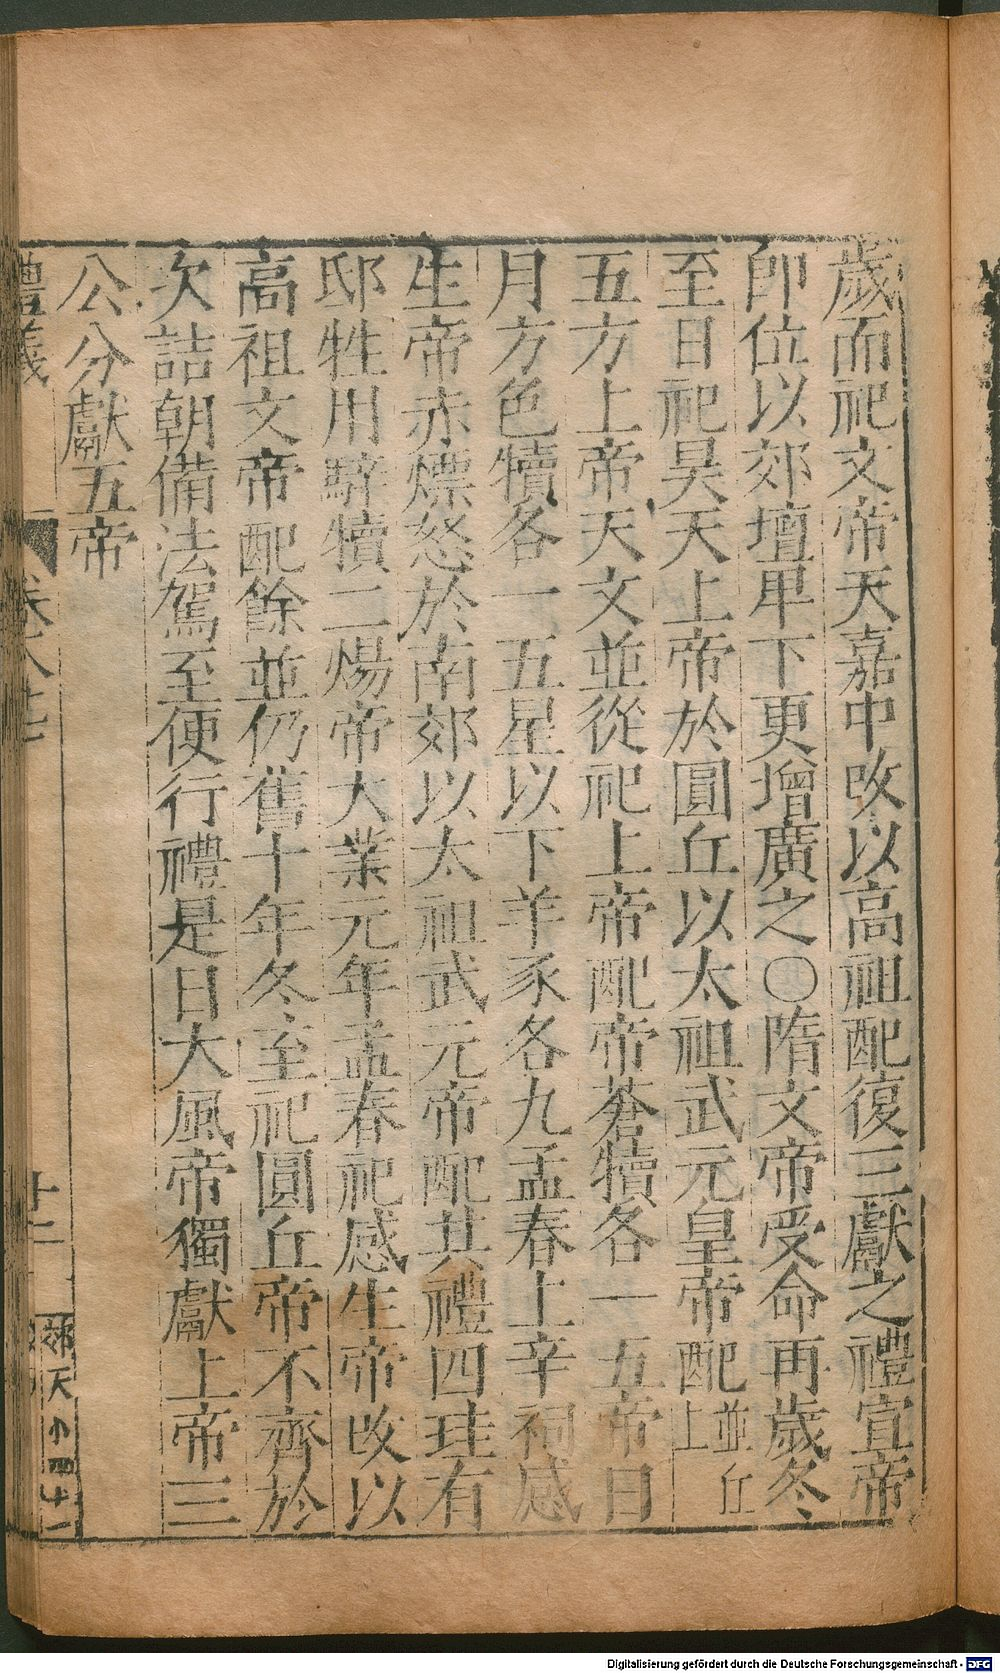 歲而祀文帝天嘉中改以高祖配復三獻之禮宣帝
即位以郊壇卑下更增廣之〇隋文帝受命再歲冬
至日祀昊天上帝於圓丘以太祖武元皇帝配並丘上
五方上帝天文並從祀上帝配帝蒼犢各一五帝日
月方色犢各一五星以下羊豕各九孟春上辛祠感
生帝赤熛怒於南郊以太祖武元帝配其禮四珪有
邸牲用騂犢二煬帝大業元年孟春祀感生帝改以
高祖文帝配餘並仍舊十年冬至祀圓丘帝不齊於
次詰朝備法駕至便行禮是日大風帝獨獻上帝三
公分獻五帝
禮義
十二
郊天
小四十一
Digitalisierung gefördert durch die Deutsche Forschungsgemeinschaft - DFG